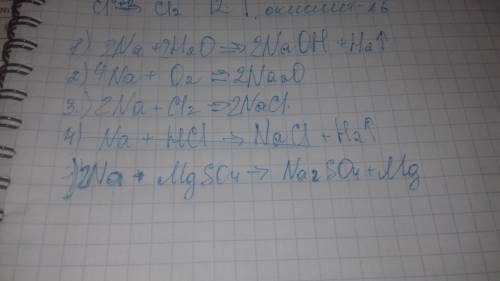 Cl Cl2 12 1
1) 2Na + 2H2O ⇒ 2NaOH + H2↑
2) 4Na + O2 = 2Na2O
3) 2Na + Cl2 ⇒ 2NaCl
4) Na + HCl → NaCl + H2↑
2Na + MgSO4 → Na2SO4 + Mg